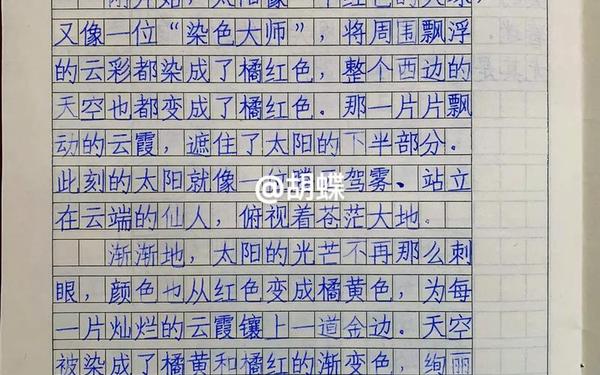 刚开始，太阳像一个红色的火球，
又像一位“染色大师”，将周围飘浮
的云彩都染成了橘红色，整个西边的
天空也都变成了橘红色．那一片片飘
动的云霞，遮住了太阳的下半部分．
此刻的太阳就像一位 驾雾、站立
@胡蝶
在云端的仙人，俯视着苍茫大地。
渐渐地，太阳的光芒不再那么刺
眼，颜色也从红色变成橘黄色，为每
一片灿烂的云霞镶上一道金边．天空
被染成了橘黄和橘红的渐变色，绚丽